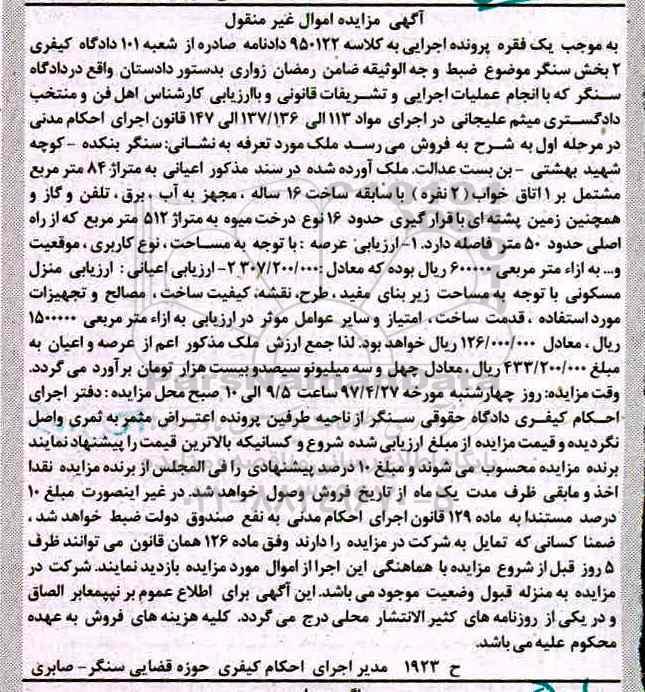 آگهی مزایده اموال غیر منقول
به موجب یک فقره پرونده اجرایی به کلاسه ۹۵۰۱۲۲ دادنامه صادره از شعبه ۱۰۱ دادگاه کیفری
۲ بخش سنگر موضوع ضبط و جه الوثیقه ضامن رمضان زواری بدستور دادستان واقع دردادگاه
سنگر که با انجام عملیات اجرایی و تشریفات قانونی و باارزیابی کارشناس اهل فن و منتخب
دادگستری میثم علیجانی در اجرای مواد ۱۱۳ الی ۱۳۷/۱۳۶ الی ۱۴۷ قانون اجرای احکام مدنی
در مرحله اول به شرح به فروش می رسد ملک مورد تعرفه به نشانی: سنگر بنکده - کوچه
شهید بهشتی - بن بست عدالت. ملک آورده شده در سند مذکور اعیانی به متراژ ۸۴ متر مربع
مشتمل بر ۱ اتاق خواب (۲ نفره) با سابقه ساخت ۱۶ ساله ، مجهز به آب ، برق ، تلفن و گاز و
همچنین زمین پشته ای با قرار گیری حدود ۱۶ نوع درخت میوه به متراژ ۵۱۲ متر مربع که از راه
اصلی حدود ۵۰ متر فاصله دارد. ۱- ارزیابی عرصه : با توجه به مساحت ، نوع کاربری ، موقعیت
و... به ازاء متر مربعی ۶۰۰۰۰۰ ریال بوده که معادل : ۳۰۷/۲۰۰/۰۰۰ ۲- ارزیابی اعیانی : ارزیابی منزل
مسکونی با توجه به مساحت زیر بنای مفید ، طرح، نقشه، کیفیت ساخت ، مصالح و تجهیزات
مورد استفاده ، قدمت ساخت ، امتیاز و سایر عوامل موثر در ارزیابی به ازاء متر مربعی ۱۵۰۰۰۰۰
ریال ، معادل ۱۲۶/۰۰۰/۰۰۰ ریال خواهد بود. لذا جمع ارزش ملک مذکور اعم از عرصه و اعیان به
مبلغ ۴۳۳/۲۰۰/۰۰۰ ریال ، معادل چهل و سه میلیونو سیصدو بیست هزار تومان برآورد می گردد.
وقت مزایده: روز چهارشنبه مورخه ۹۷/۴/۲۷ ساعت ۹/۵ الی ۱۰ صبح محل مزایده : دفتر اجرای
احکام کیفری دادگاه حقوقی سنگر از ناحیه طرفین پرونده اعتراض مثمر به ثمری واصل
نگردیده و قیمت مزایده از مبلغ ارزیابی شده شروع و کسانیکه بالاترین قیمت را پیشنهاد نمایند
برنده مزایده محسوب می شوند و مبلغ ۱۰ درصد پیشنهادی را فی المجلس از برنده مزایده نقدا
اخذ و مابقی ظرف مدت یک ماه از تاریخ فروش وصول خواهد شد. در غیر اینصورت مبلغ ۱۰
درصد مستندا به ماده ۱۲۹ قانون اجرای احکام مدنی به نفع صندوق دولت ضبط خواهد شد ،
ضمنا کسانی که تمایل به شرکت در مزایده را دارند وفق ماده ۱۲۶ همان قانون می توانند ظرف
۵ روز قبل از شروع مزایده با هماهنگی این اجرا از اموال مورد مزایده بازدید نمایند. شرکت در
مزایده به منزله قبول وضعیت موجود می باشد. این آگهی برای اطلاع عموم بر نپپمعابر الصاق
و در یکی از روزنامه های کثیر الانتشار محلی درج می گردد. کلیه هزینه های فروش به عهده
محکوم علیه می باشد.
ح ۱۹۲۳ مدیر اجرای احکام کیفری حوزه قضایی سنگر- صابری